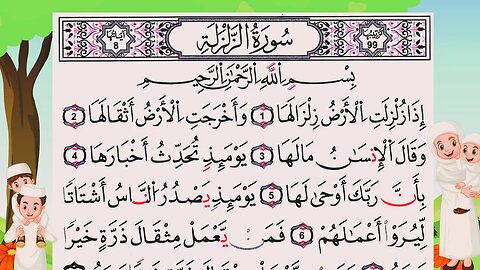 ترتيبها 99 سُورَةُ الزَّلْزَلَةِ آياتها 8
بِسْمِ اللَّهِ الرَّحْمَٰنِ الرَّحِيمِ
إِذَا زُلْزِلَتِ الْأَرْضُ زِلْزَالَهَا 1 وَأَخْرَجَتِ الْأَرْضُ أَثْقَالَهَا 2
وَقَالَ الْإِنسَانُ مَا لَهَا 3 يَوْمَئِذٍ تُحَدِّثُ أَخْبَارَهَا 4
بِأَنَّ رَبَّكَ أَوْحَىٰ لَهَا 5 يَوْمَئِذٍ يَصْدُرُ النَّاسُ أَشْتَاتًا
لِّيُرَوْا أَعْمَالَهُمْ 6 فَمَن يَعْمَلْ مِثْقَالَ ذَرَّةٍ خَيْرًا